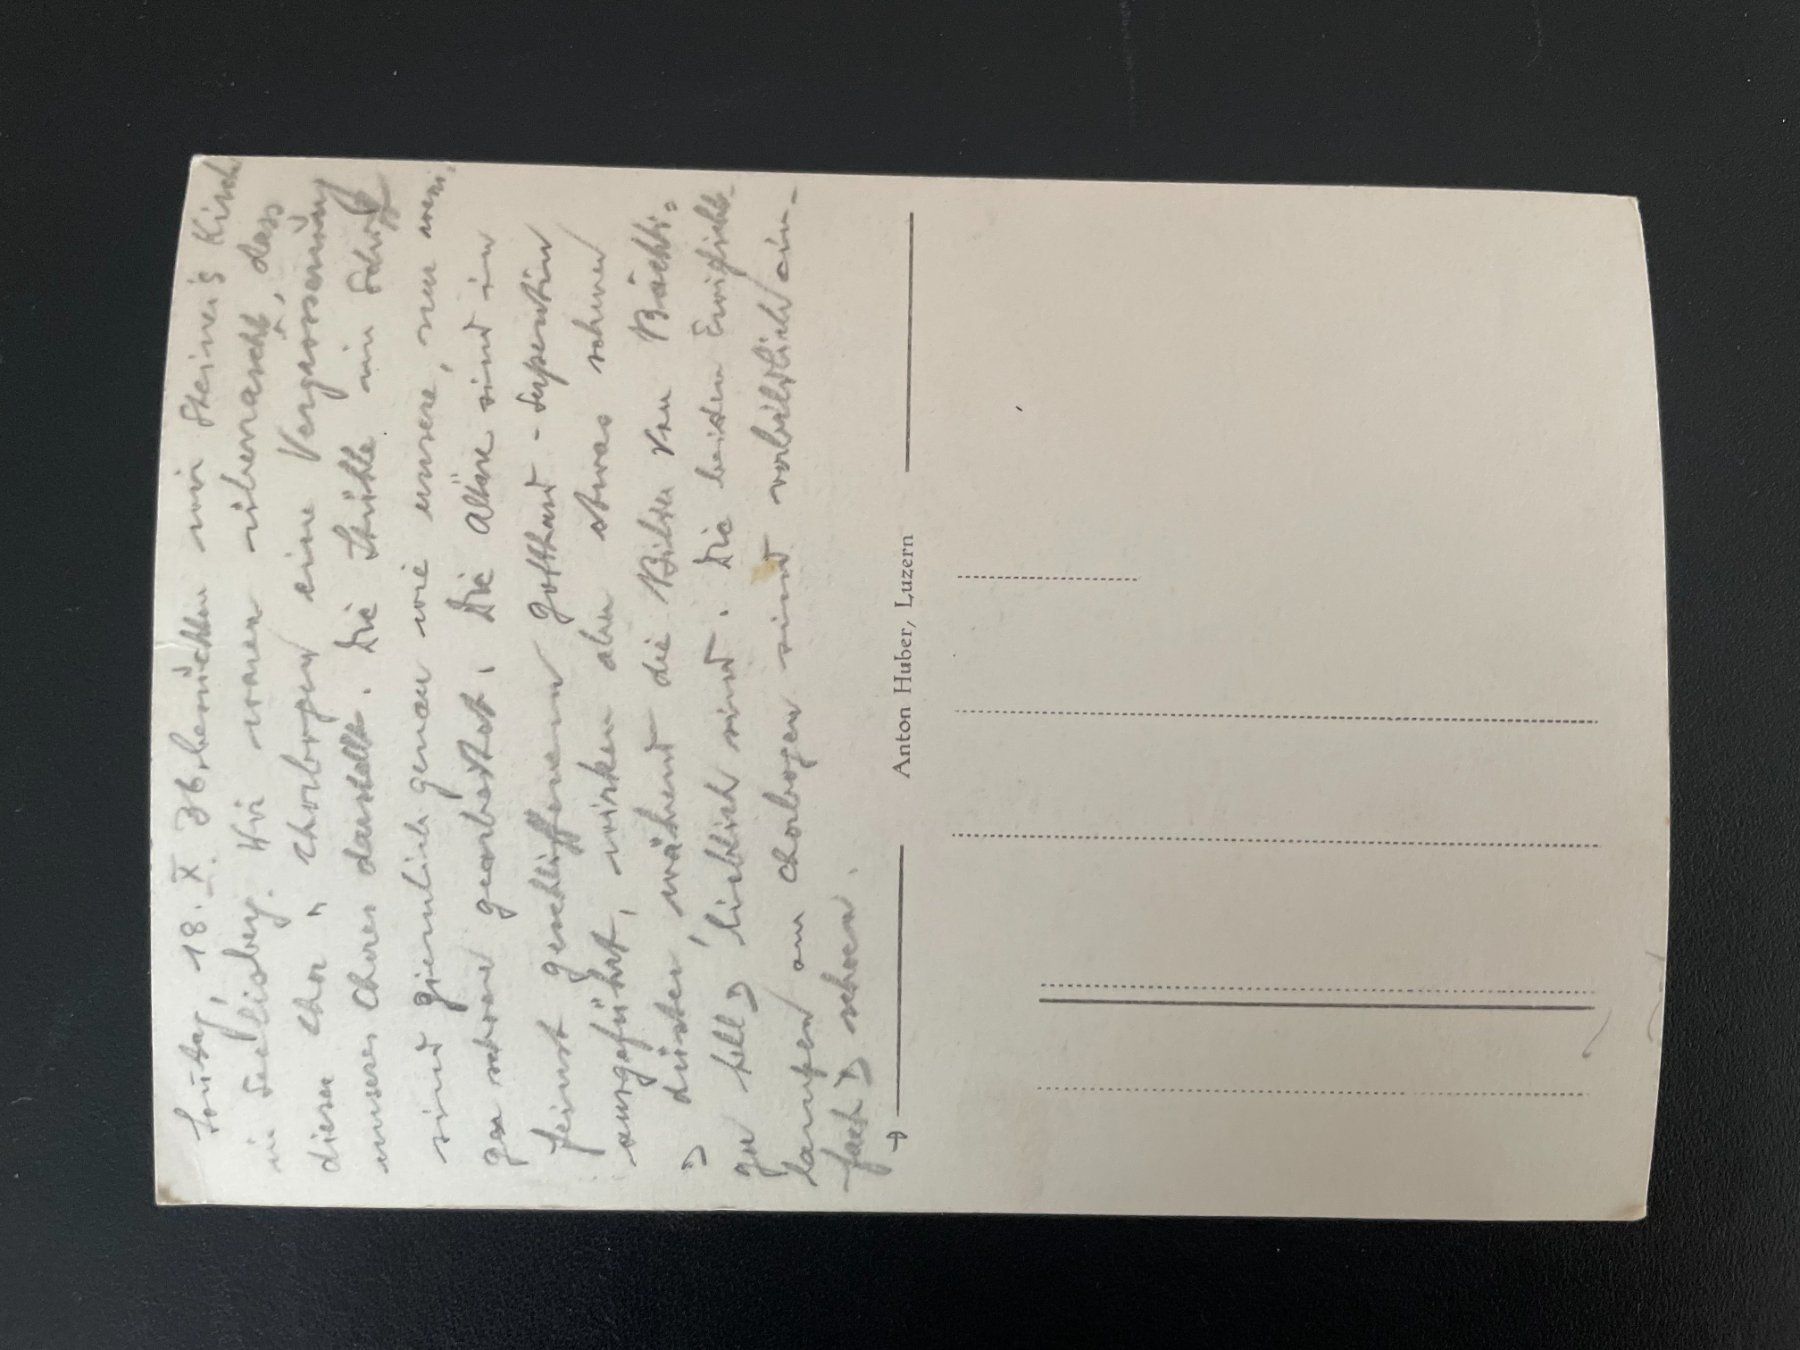 Sontag, 18. X. 36. besuchten wir Steiner's Kirch
in Seelisberg. Wir waren überrascht, dass
dieser Chor u. Chorbogen eine Vergrösserung
unseres Chores darstellt. Die Stühle im Schiff
sind ziemlich genau wie unsere, nur weni-
ger schwer gearbeitet. Die Altäre sind in
feinst geschliffenem Gotthard-Serpentin
ausgeführt, wirken aber etwas schwer
u. düster, während die Bilder von Bächti-
ger hell u. lieblich sind. Die beiden
laufen am Chorbogen sind vorbildlich ein-
fach u. schoen.
Anton Huber, Luzern